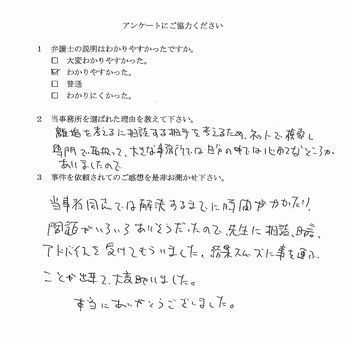 アンケートにご協力ください
1 弁護士の説明はわかりやすかったですか。
□ 大変わかりやすかった。
☑ わかりやすかった。
□ 普通
□ わかりにくかった。
2 当事務所を選ばれた理由を教えて下さい。
離婚を考えるに相談する相手を考えるため、ネットで検索し
専門で取扱って、大きな事務所では自分の中では心配なところが
ありましたので
3 事件を依頼されてのご感想を是非お聞かせ下さい。
当事者同志では解決するまでに時間がかかたり、
問題がいろいろありそうだったので、先生に相談、助言、
アドバイスを受けてもらいました。結果スムーズに事を運ぶ
ことが出来て、大変助いました。
本当にありがとうございました。